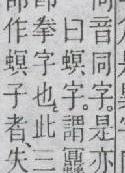 同音同字。是亦
曰螟。謂
即拳字也。此三
作螟子者、失